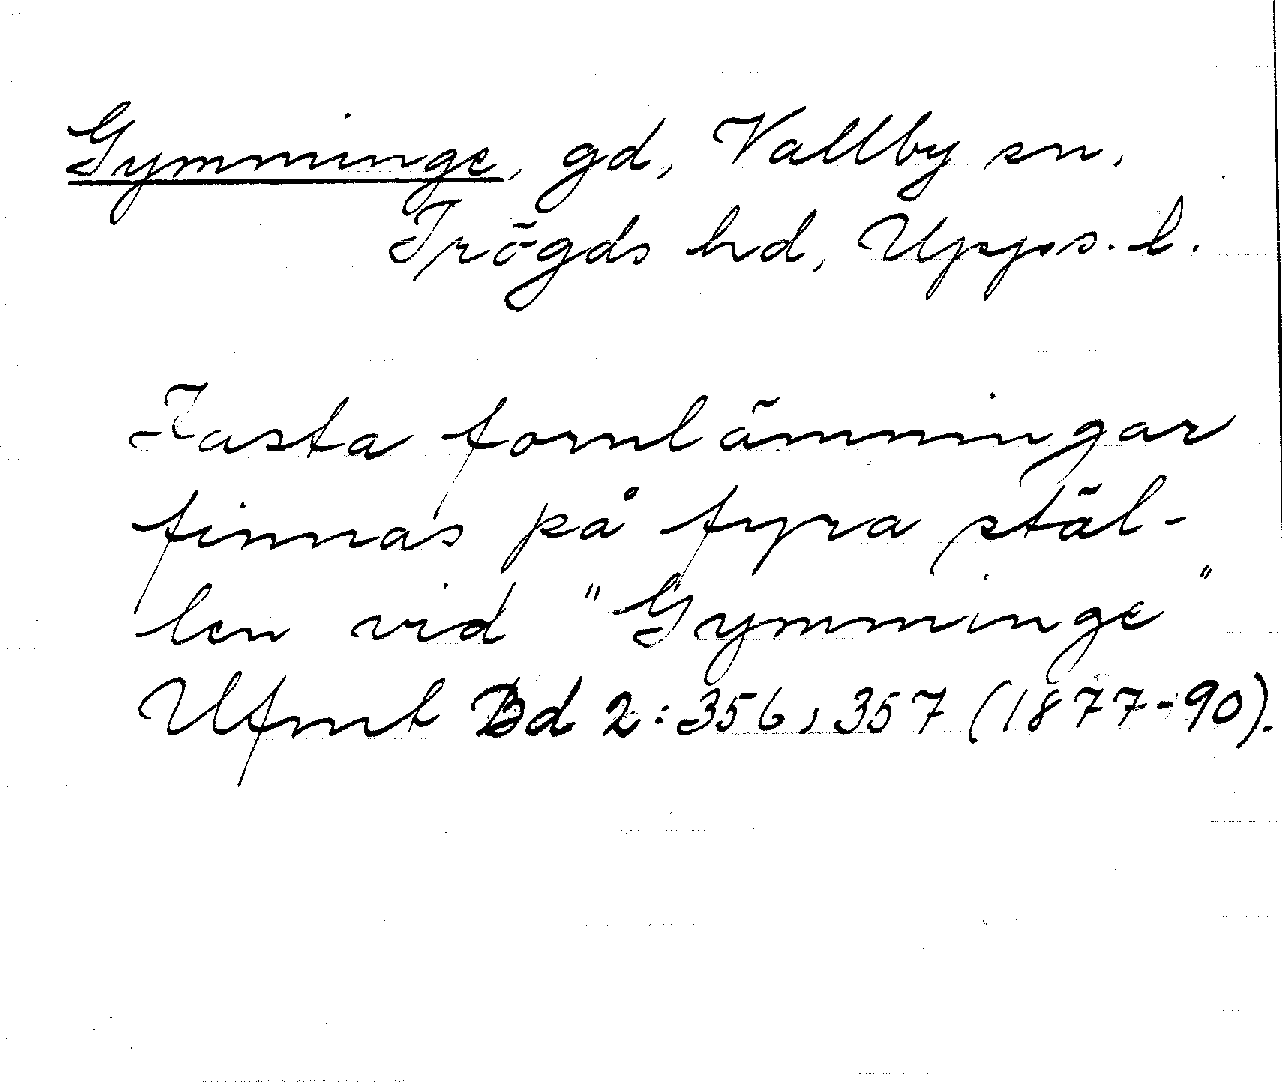 Gymminge, gd, Vallby sn.
Trögds hd, Upps. l.
Fasta fornlämningar
finnas på fyra stäl-
len vid "Gymminge"
Ufmt Bd 2: 356, 357 (1877-90).